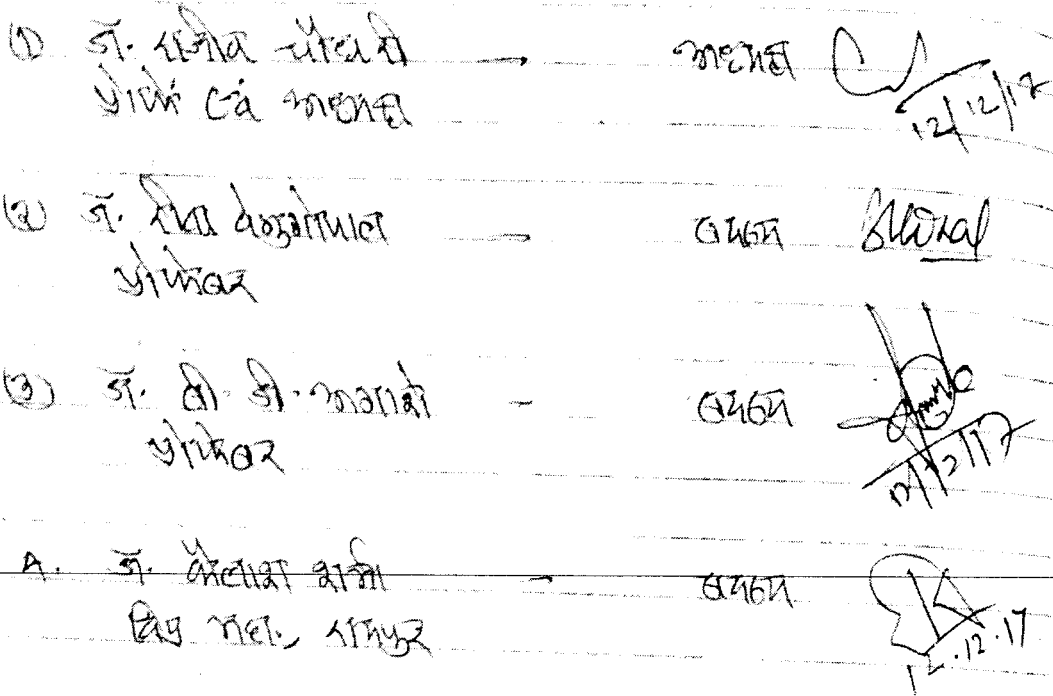 ① डॉ. राजीव चौधरी — अध्यक्ष 12/12/17
प्रोफे एवं अध्यक्ष
② डॉ. रीता वेणुगोपाल — सदस्य
प्रोफेसर
③ डॉ. सी. डी. आगाशे - सदस्य 12/12/17
प्रोफेसर
4. डॉ. कैलाश शर्मा - सदस्य 12.12.17
विप्र महा., रायपुर